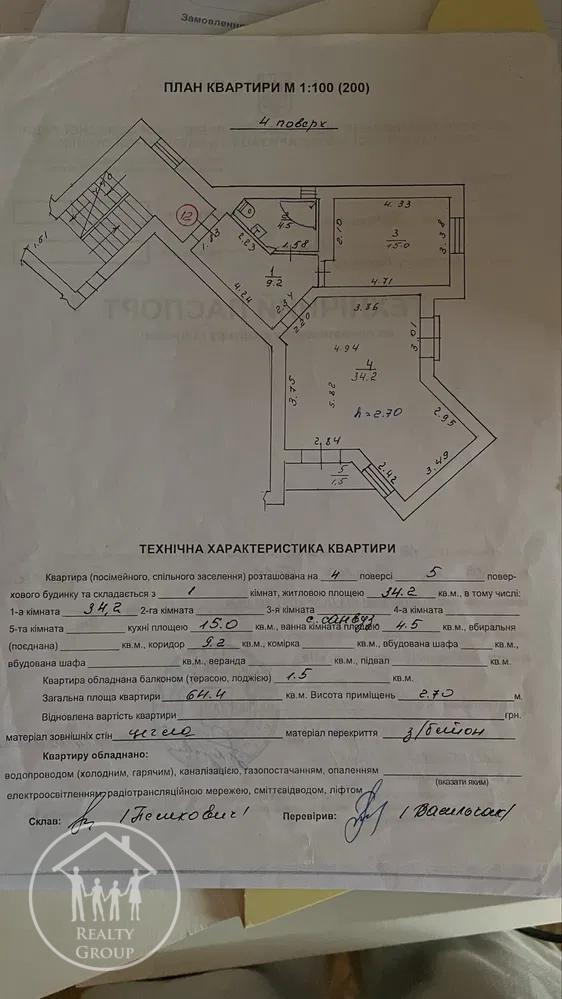 Замовлення
ПЛАН КВАРТИРИ М 1:100 (200)
4 поверх
1.51
12
1.83
2.23
2
4.5
1.58
2.10
4.33
3
15.0
3.38
4.71
1
9.2
4.24
2.34
2.20
3.86
3.01
4.94
4
34.2
3.75
5.82
h=2.70
2.95
3.49
2.42
2.84
5
1.5
ТЕХНІЧНА ХАРАКТЕРИСТИКА КВАРТИРИ
Квартира (посімейного, спільного заселення) розташована на 4 поверсі 5 повер-
хового будинку та складається з 1 кімнат, житловою площею 34.2 кв.м., в тому числі:
1-а кімната 34,2 2-га кімната 3-я кімната 4-а кімната
5-та кімната кухні площею 15.0 кв.м., ванна кімната площею с. санвуз 4.5 кв.м., вбиральня
(поєднана) кв.м., коридор 9.2 кв.м., комірка кв.м., вбудована шафа кв.м.,
вбудована шафа кв.м., веранда кв.м., підвал кв.м.
Квартира обладнана балконом (терасою, лоджією) 1.5 кв.м.
Загальна площа квартири 64.4 кв.м. Висота приміщень 2.70 м.
Відновлена вартість квартири грн.
матеріал зовнішніх стін цегла матеріал перекриття з/бетон
Квартиру обладнано:
водопроводом (холодним, гарячим), каналізацією, газопостачанням, опаленням
(вказати яким)
електроосвітленням, радіотрансляційною мережею, сміттєвідводом, ліфтом
Склав: /Пешкович/ Перевірив: /Васильчак/
REALTY
GROUP